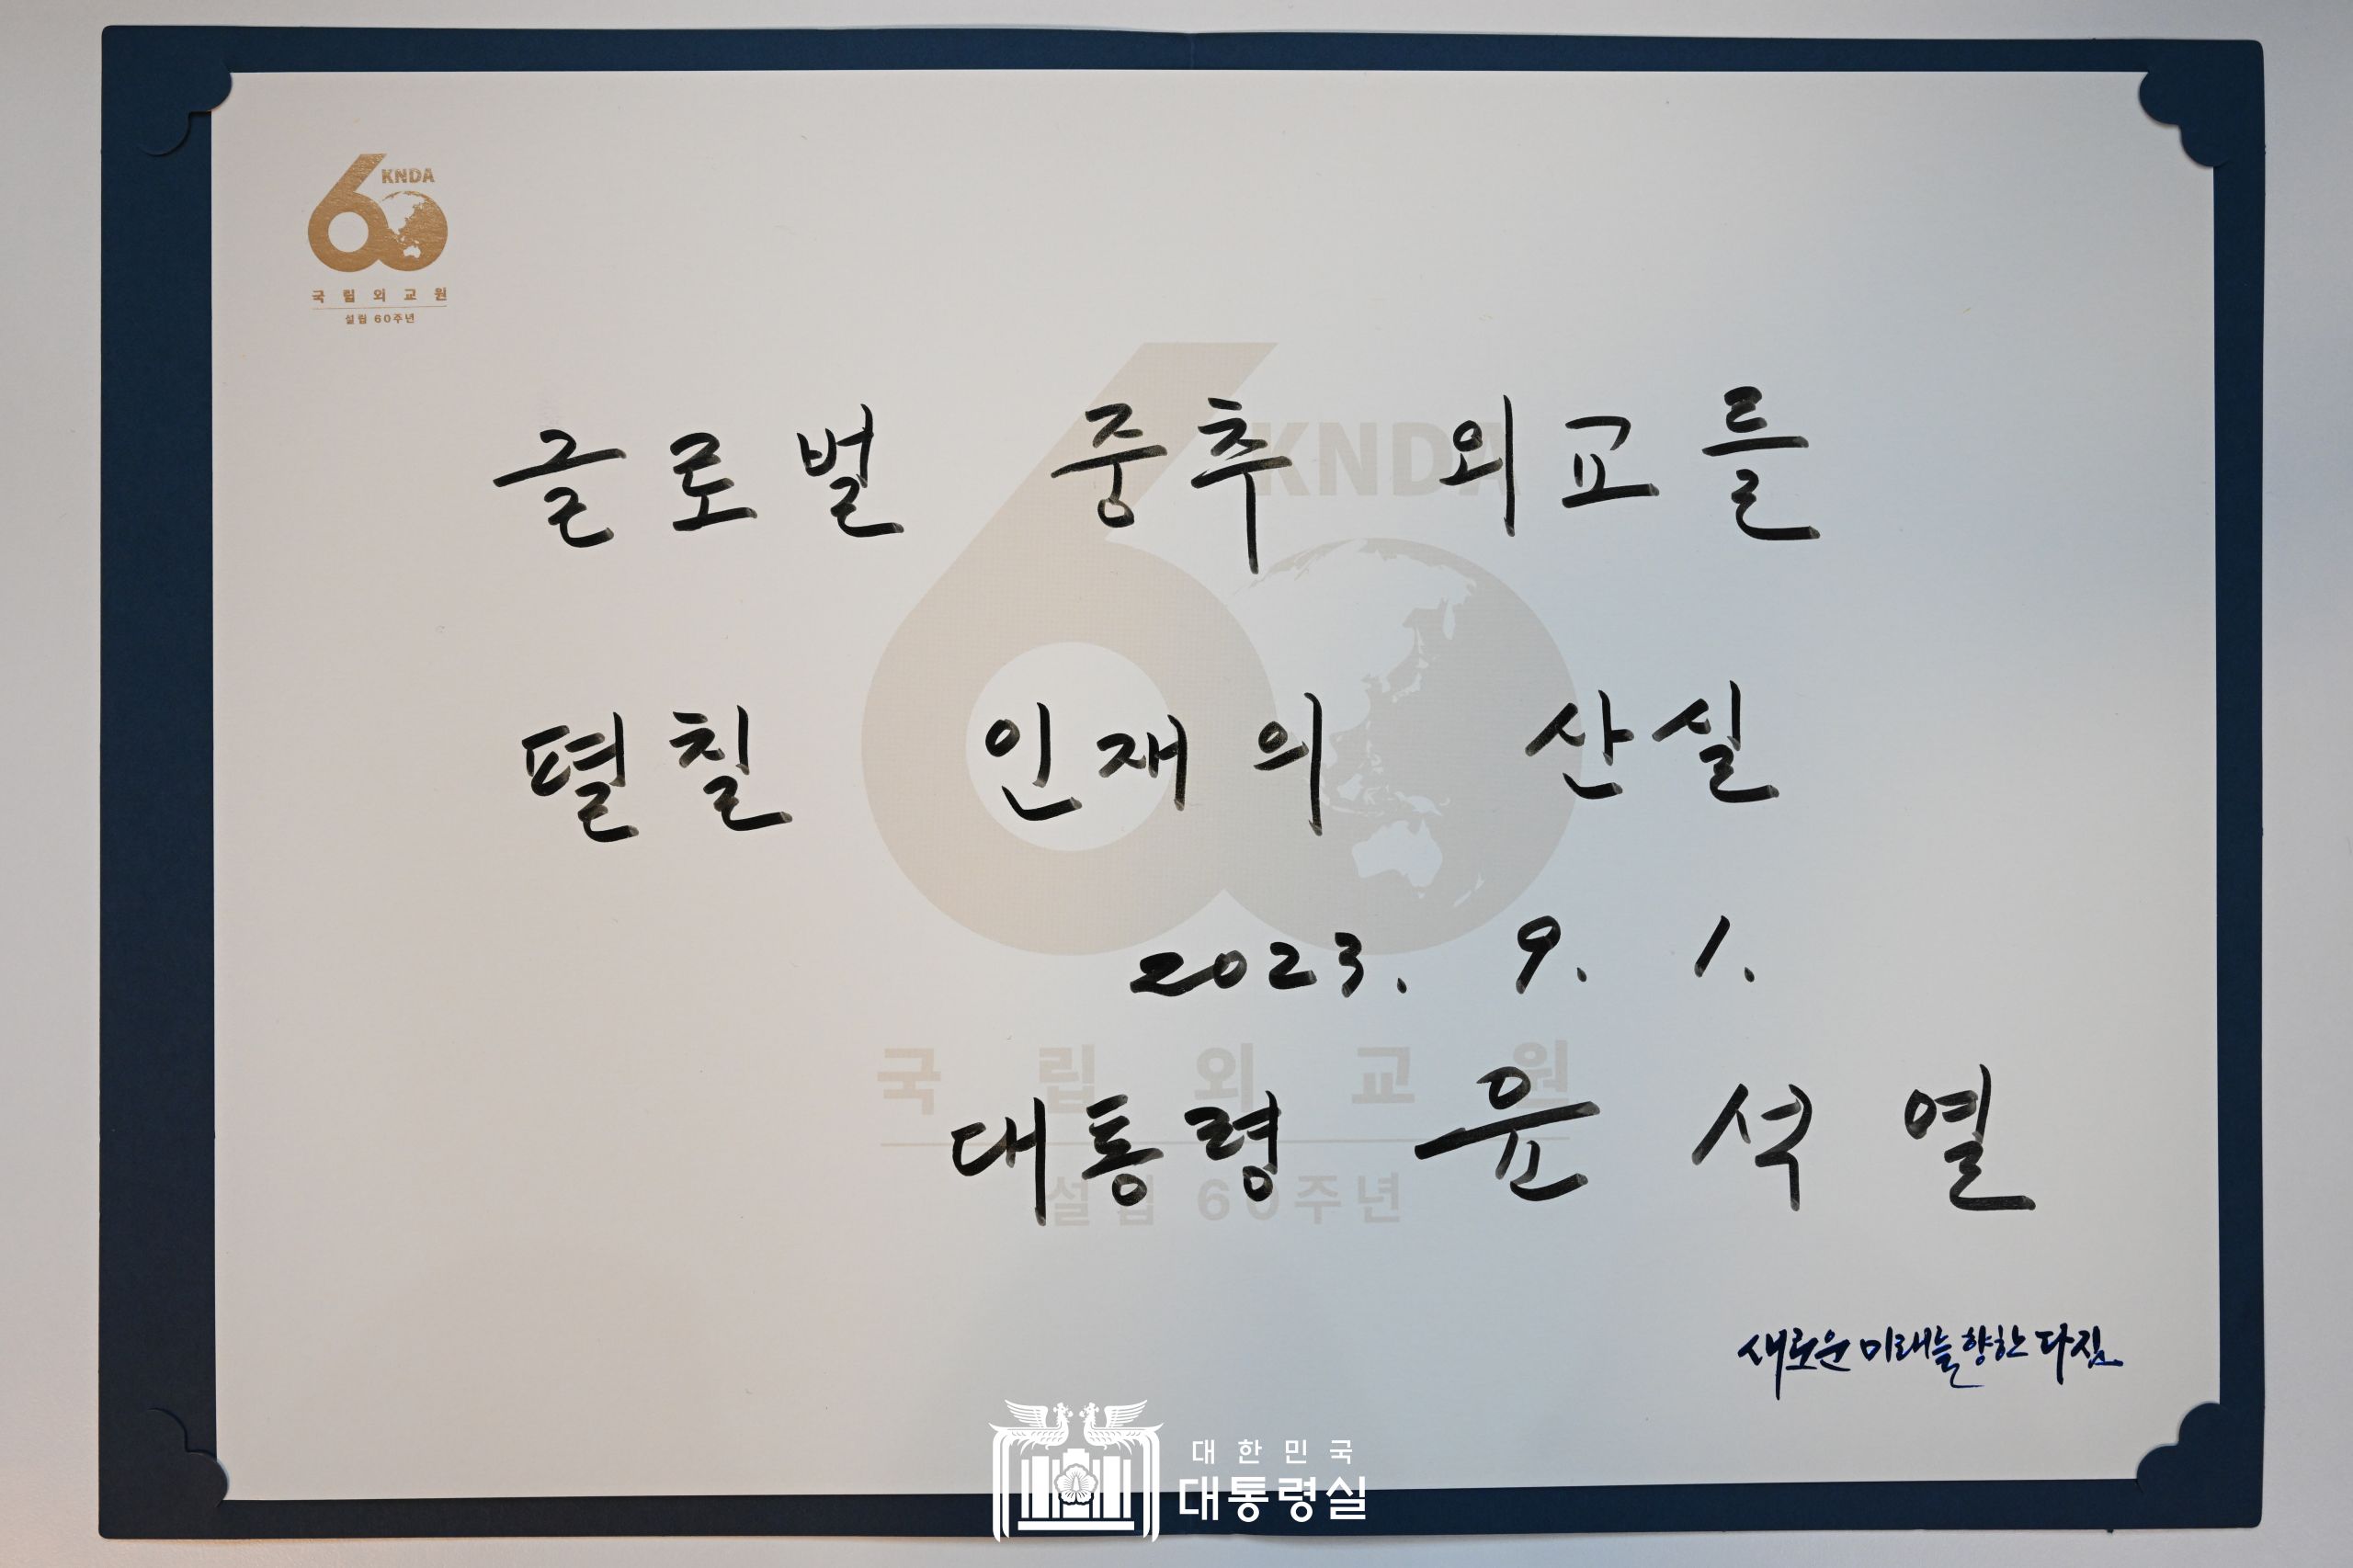 KNDA
국립외교원
설립 60주년
KNDA
글로벌 중추 외교를
펼칠 인재의 산실
2023. 9. 1.
국립외교원
대통령 윤석열
설립 60주년
새로운 미래를 향한 다짐
대한민국
대통령실